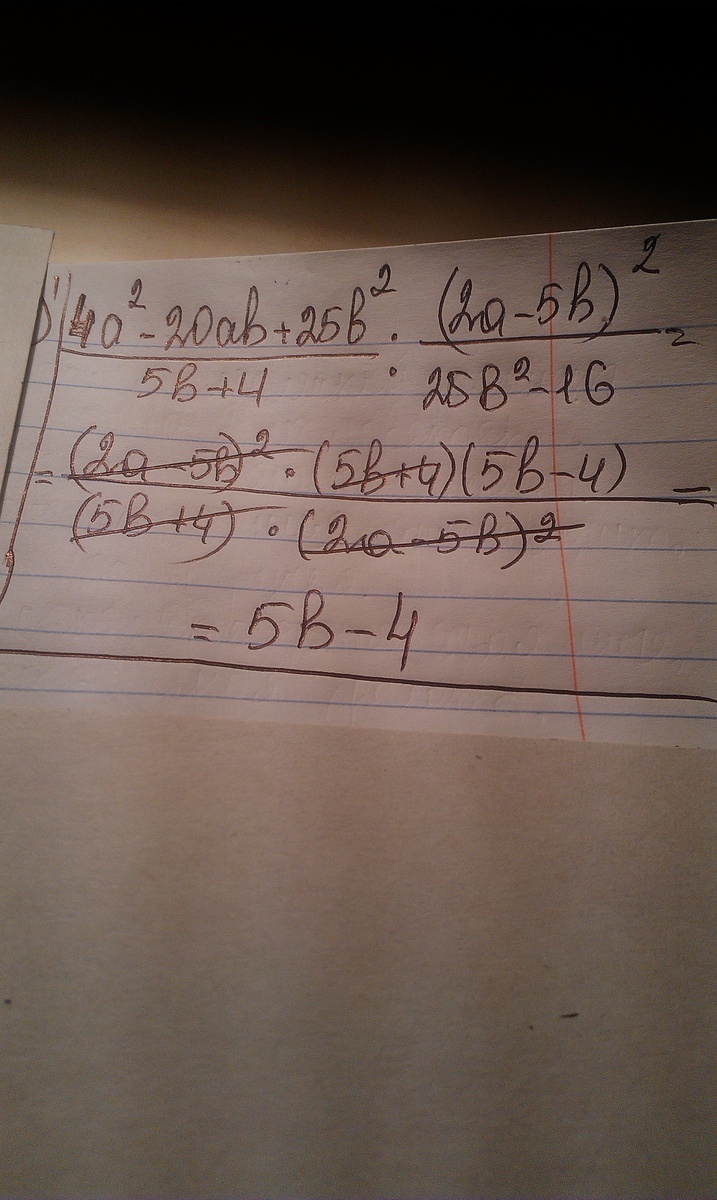 б) (4a² - 20ab + 25b²)/(5b + 4) : (2a - 5b)²/(25b² - 16) =
= ((2a - 5b)² · (5b + 4)(5b - 4))/((5b + 4) · (2a - 5b)²) =
= 5b - 4